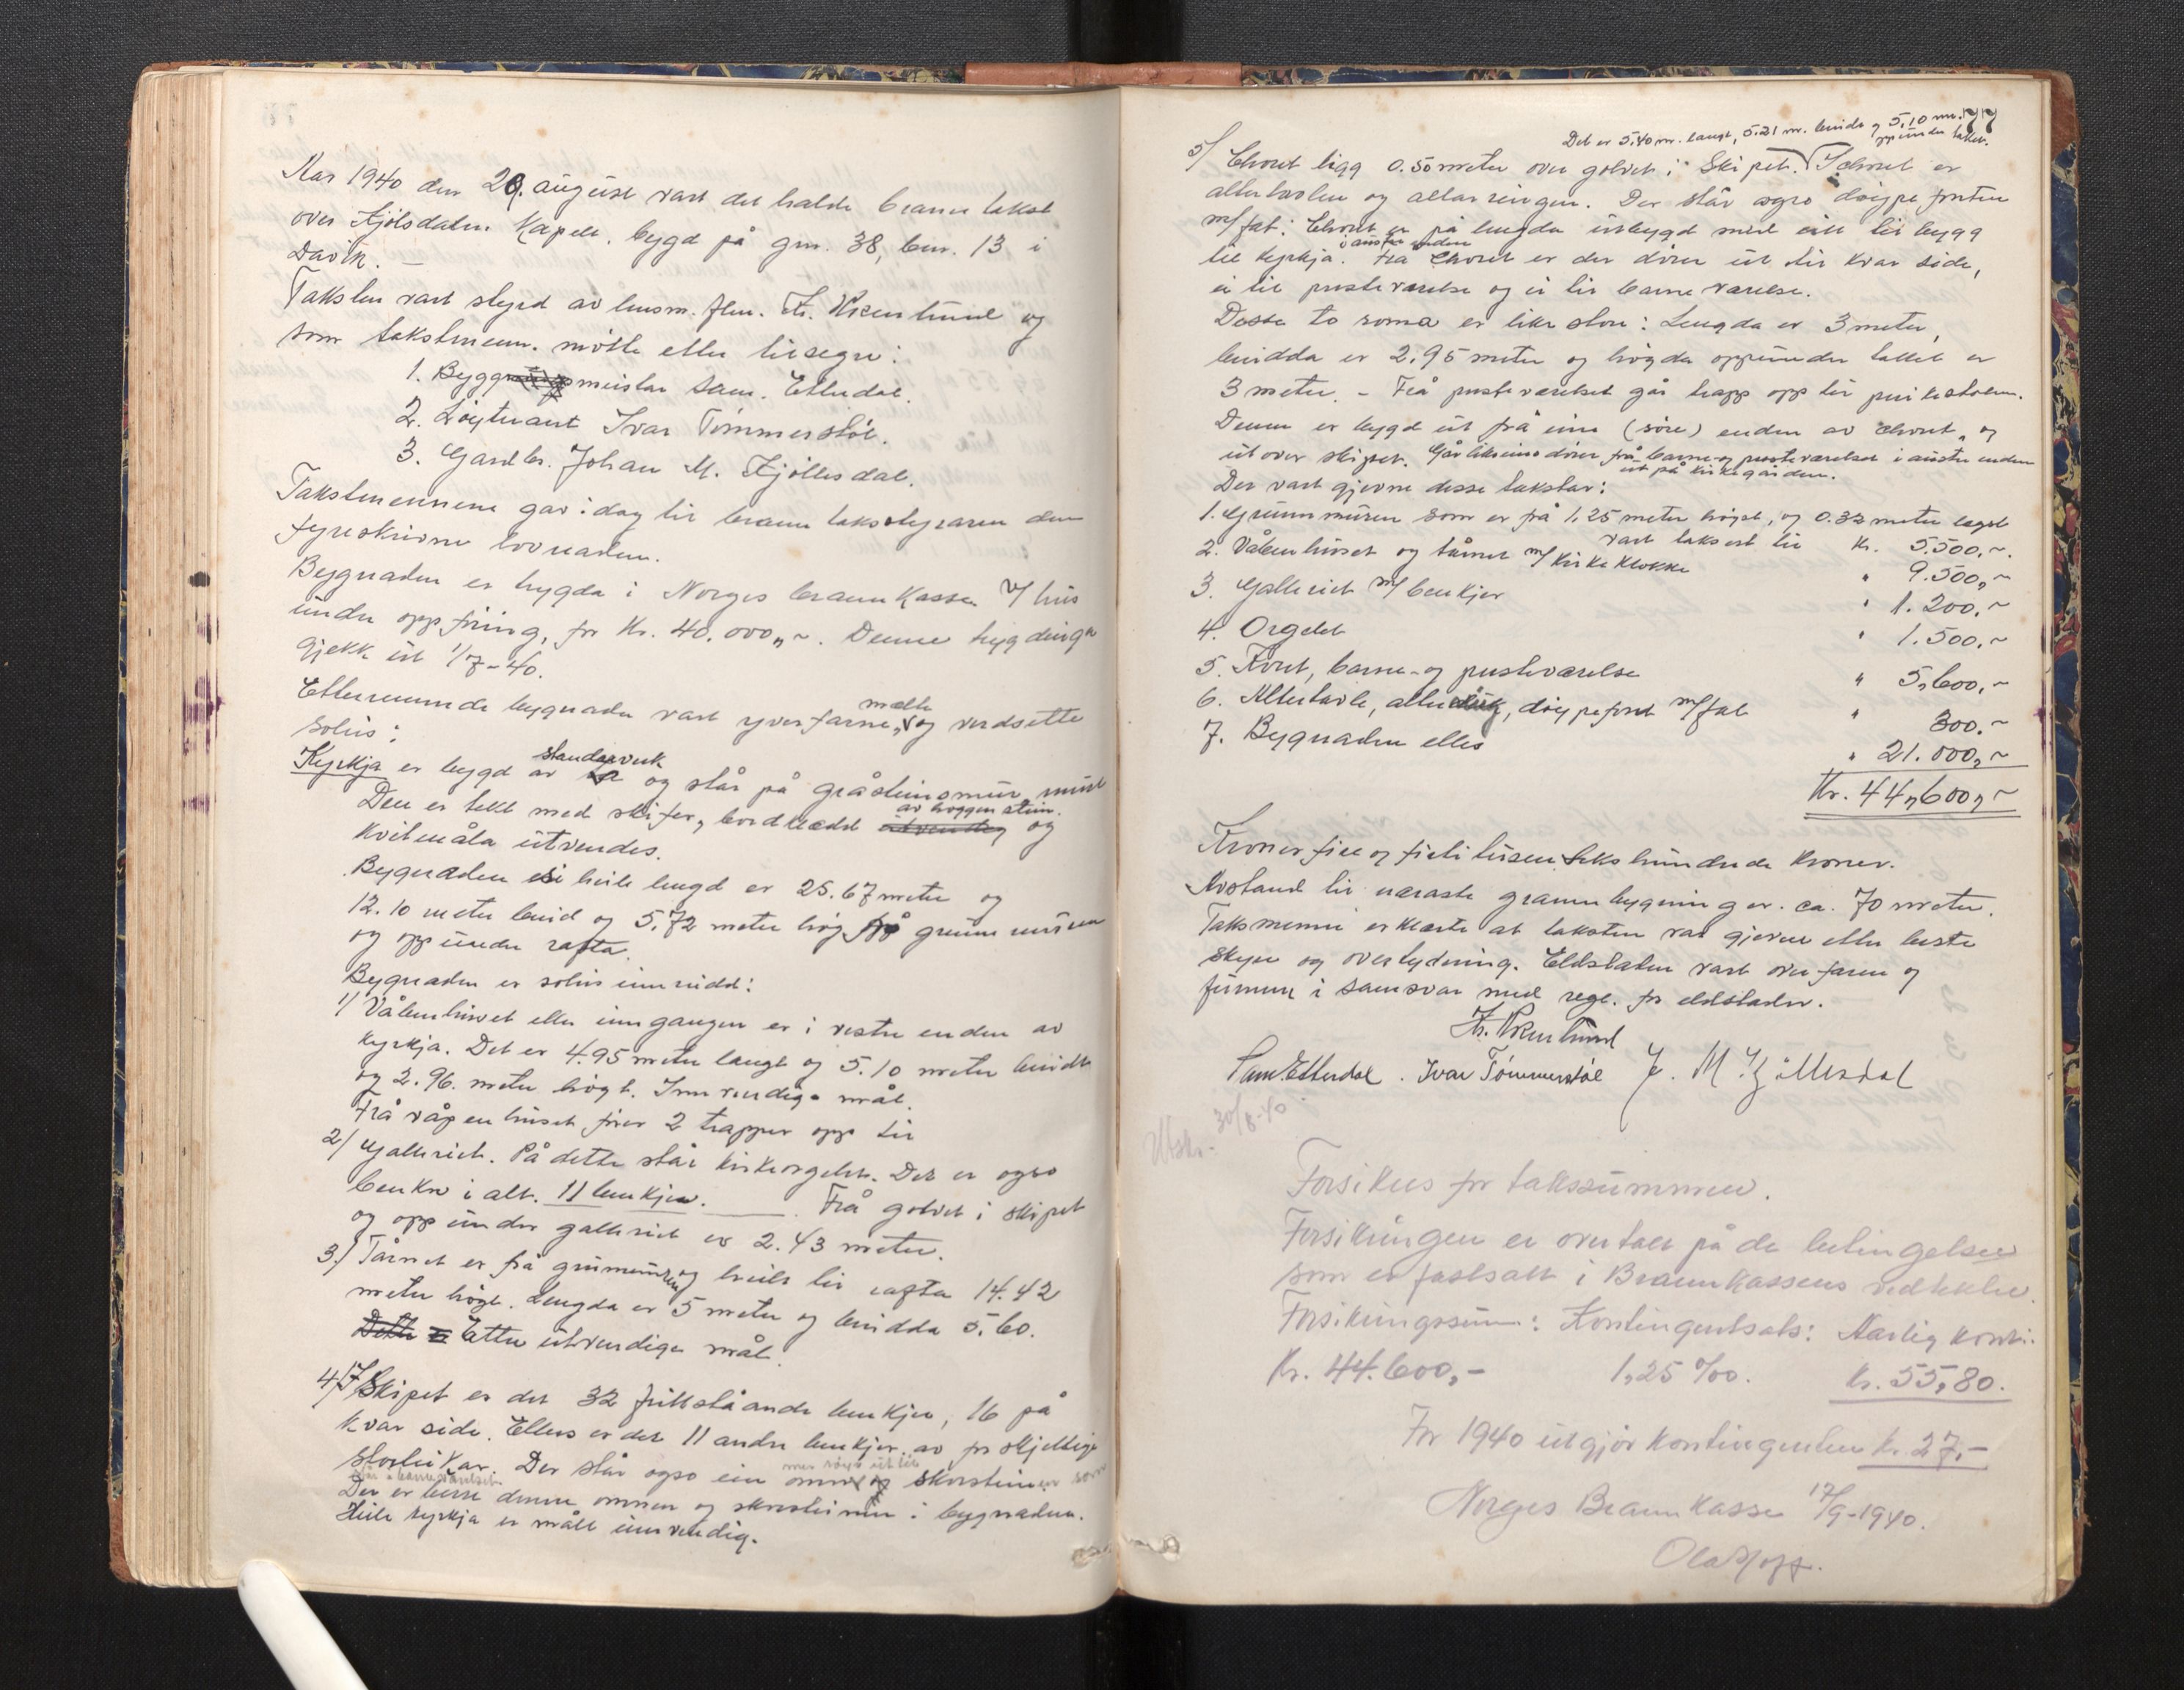 Aar 1940 den 29. august vart det halde branntakst
over Kjölsdalen Kapell, bygd på gnr. 38, bnr. 13 i
Davik. —
Taksten vart styrd av lensm. flm. Kr. Vikenlund og
som takstmenn. møtte etter tilsegn:
1. Byggmeistar Sam. Etterdal.
2. Løytnant Ivar Tömmerstöl.
3. Gardbr. Johan M. Kjöllesdal.
Takstmennene gav i dag til branntakststyraren den
fyreskrivne lovnaden.
Bygnaden er trygda i Norges brannkasse v/ hus
under oppföring, for Kr. 40.000,~. Denne trygdinga
gjekk ut 1/7-40.
Etternemnde bygnader vart yverfarne, mælte og verdsette
soleis:
Kyrkja er bygd av standarverk og står på gråsteinsmur
av hoggen stein.
Den er tekt med skifer, bordklædd og
kvitmåla utvendes.
Bygnaden si heile lengd er 25.67 meter og
12.10 meter breid og 5.72 meter høg på grunnmuren
og opp under rafta.
Bygnaden er soleis innreidd:
1/ Våbenhuset eller inngangen er i vestre enden av
kyrkja. Det er 4.95 meter langt og 5.10 meter breidt
og 2.96. meter högt. Innvendige mål.
Frå våpenhuset förer 2 trapper opp til
2/ Galleriet. På dette står kirkeorgelet. Det er ogso
benker i alt. 11 benkjer. ——— Frå golvet i skipet
og opp under galleriet er 2.43 meter.
3/ Tårnet er frå grunnmuren og heilt til rafta 14.42
meter högt. Lengda er 5 meter og breidda 5.60.
Dette er Etter utvendige mål.
4/ I Skipet er det 32 frittståande benkjer, 16 på
kvar side. Ellers er det 11 andre benkjer av forskjellige
storleikar. Der står ogso ein omn skorstein
Der er berre denne omnen og skorsteinen i bygnaden.
Heile kyrkja er målt innvendig.
77
Det er 5.40 m. langt, 5.21 m. breidt og 5.10 m.
opp under taket.
5/ Choret ligg 0.50 meter over golvet i Skipet. I choret er
altertavlen og altarringen. Der står ogso döypefonten
m/fat. Choret er på lengda utbygd med eitt tilbygg
til kyrkja. i austre enden Frå Choret er der dörer ut til kvar side,
ei til presteværelse og ei til barneværelse.
Desse to romma er like store: Lengda er 3 meter,
breidda er 2.95 meter og högda oppunder taket er
3 meter. – Frå presteværelset går trapp opp til preikestolen.
Denne er bygd ut frå eine (söre) enden av choret, og
utover skipet. Går likeeins dörer frå barne- og presteværelset i austre enden
ut på kirkegården.
Der vart gjevne desse takstar:
1. Grunnmuren som er frå 1,25 meter högst, og 0.32 meter lægst
vart taksert til Kr. 5.500,~.
2. Våbenhuset og tårnet m/ Kirkeklokke " 9.500,~
3. Galleriet m/ benkjer " 1.200,~
4. Orgelet " 1.500,~
5. Koret, barne- og presteværelse " 5,600,~
6. Altertavle, alterduk, döypefont m/fat " 300,~
7. Bygnaden elles " 21.000,~
Kr. 44,600,~
Kroner fire og firti tusen seks hundrede kroner.
Avstand til næraste grannbygning er ca. 70 meter.
Takstmenni erklærte at taksten var gjeven etter beste
skyn og overtydning. Eldstaden vart overfaren og
funnen i samsvar med regl. for eldstader.
Kr. Vikenlund
Sam. Etterdal. Ivar Tömmerstöl J. M. Kjöllesdal
Utskr. 30/8-40
Forsikres for takssummen.
Forsikringen er overtatt på de betingelser
som er fastsatt i Brannkassens vedtekter.
Forsikringssum: Kontingentsats: Aarlig kont.:
Kr. 44.600,- 1,25 ‰. Kr. 55,80.
For 1940 utgjør kontingenten kr. 27,-
Norges Brannkasse 17/9-1940.